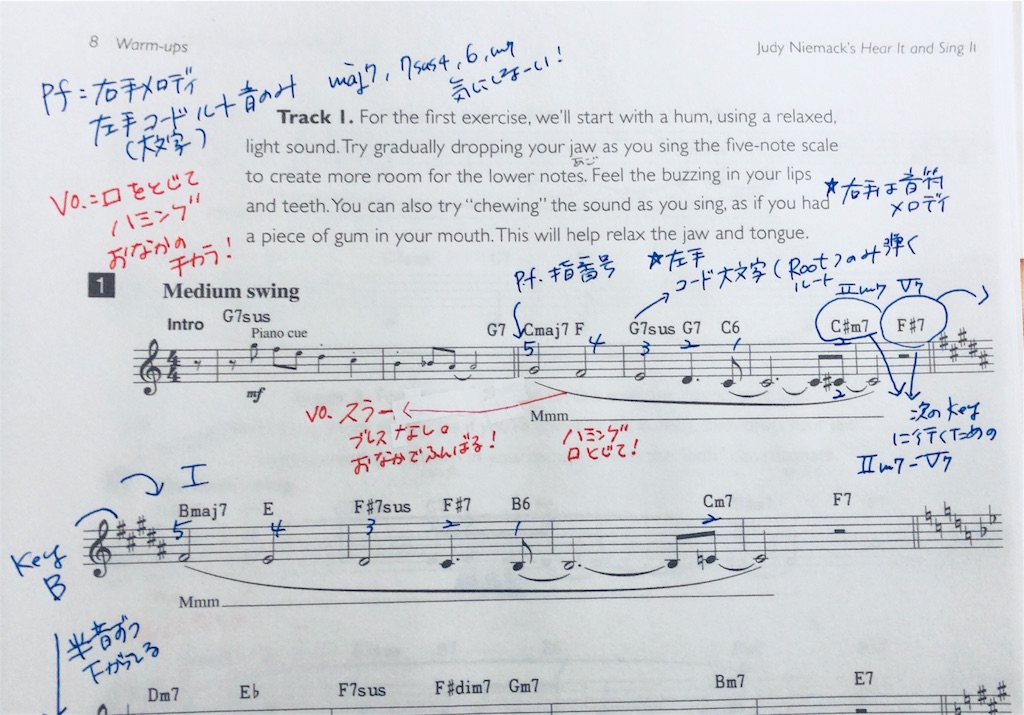 8 Warm-ups
Judy Niemack's Hear It and Sing It
Pf=右手メロディ
左手コードルート音のみ
(大文字)
maj7, 7sus4, 6, m7
気にしなーい!
Track 1. For the first exercise, we'll start with a hum, using a relaxed,
light sound. Try gradually dropping your jaw as you sing the five-note scale
あご
to create more room for the lower notes. Feel the buzzing in your lips
and teeth. You can also try "chewing" the sound as you sing, as if you had
a piece of gum in your mouth. This will help relax the jaw and tongue.
★右手は音符
メロディ
Vo.=口をとじて
ハミング
おなかの
チカラ!
1
Medium swing
Pf. 指番号
★左手
コード大文字(Root)のみ弾く
ルート
IIm7 V7
Intro
G7sus
Piano cue
G7 Cmaj7 F G7sus G7 C6 C#m7 F#7
5 4 3 2 1 2
4
4
mf
2
Mmm
Vo. スラー、
ブレスなし。
おなかでふんばる!
ハミング
口とじて!
次のKey
に行くための
IIm7-V7
I
Bmaj7 E F#7sus F#7 B6 Cm7 F7
5 4 3 2 1 2
Key
B
Mmm
半音ずつ
下がってる
Dm7 E♭ F7sus F#dim7 Gm7 Bm7 E7